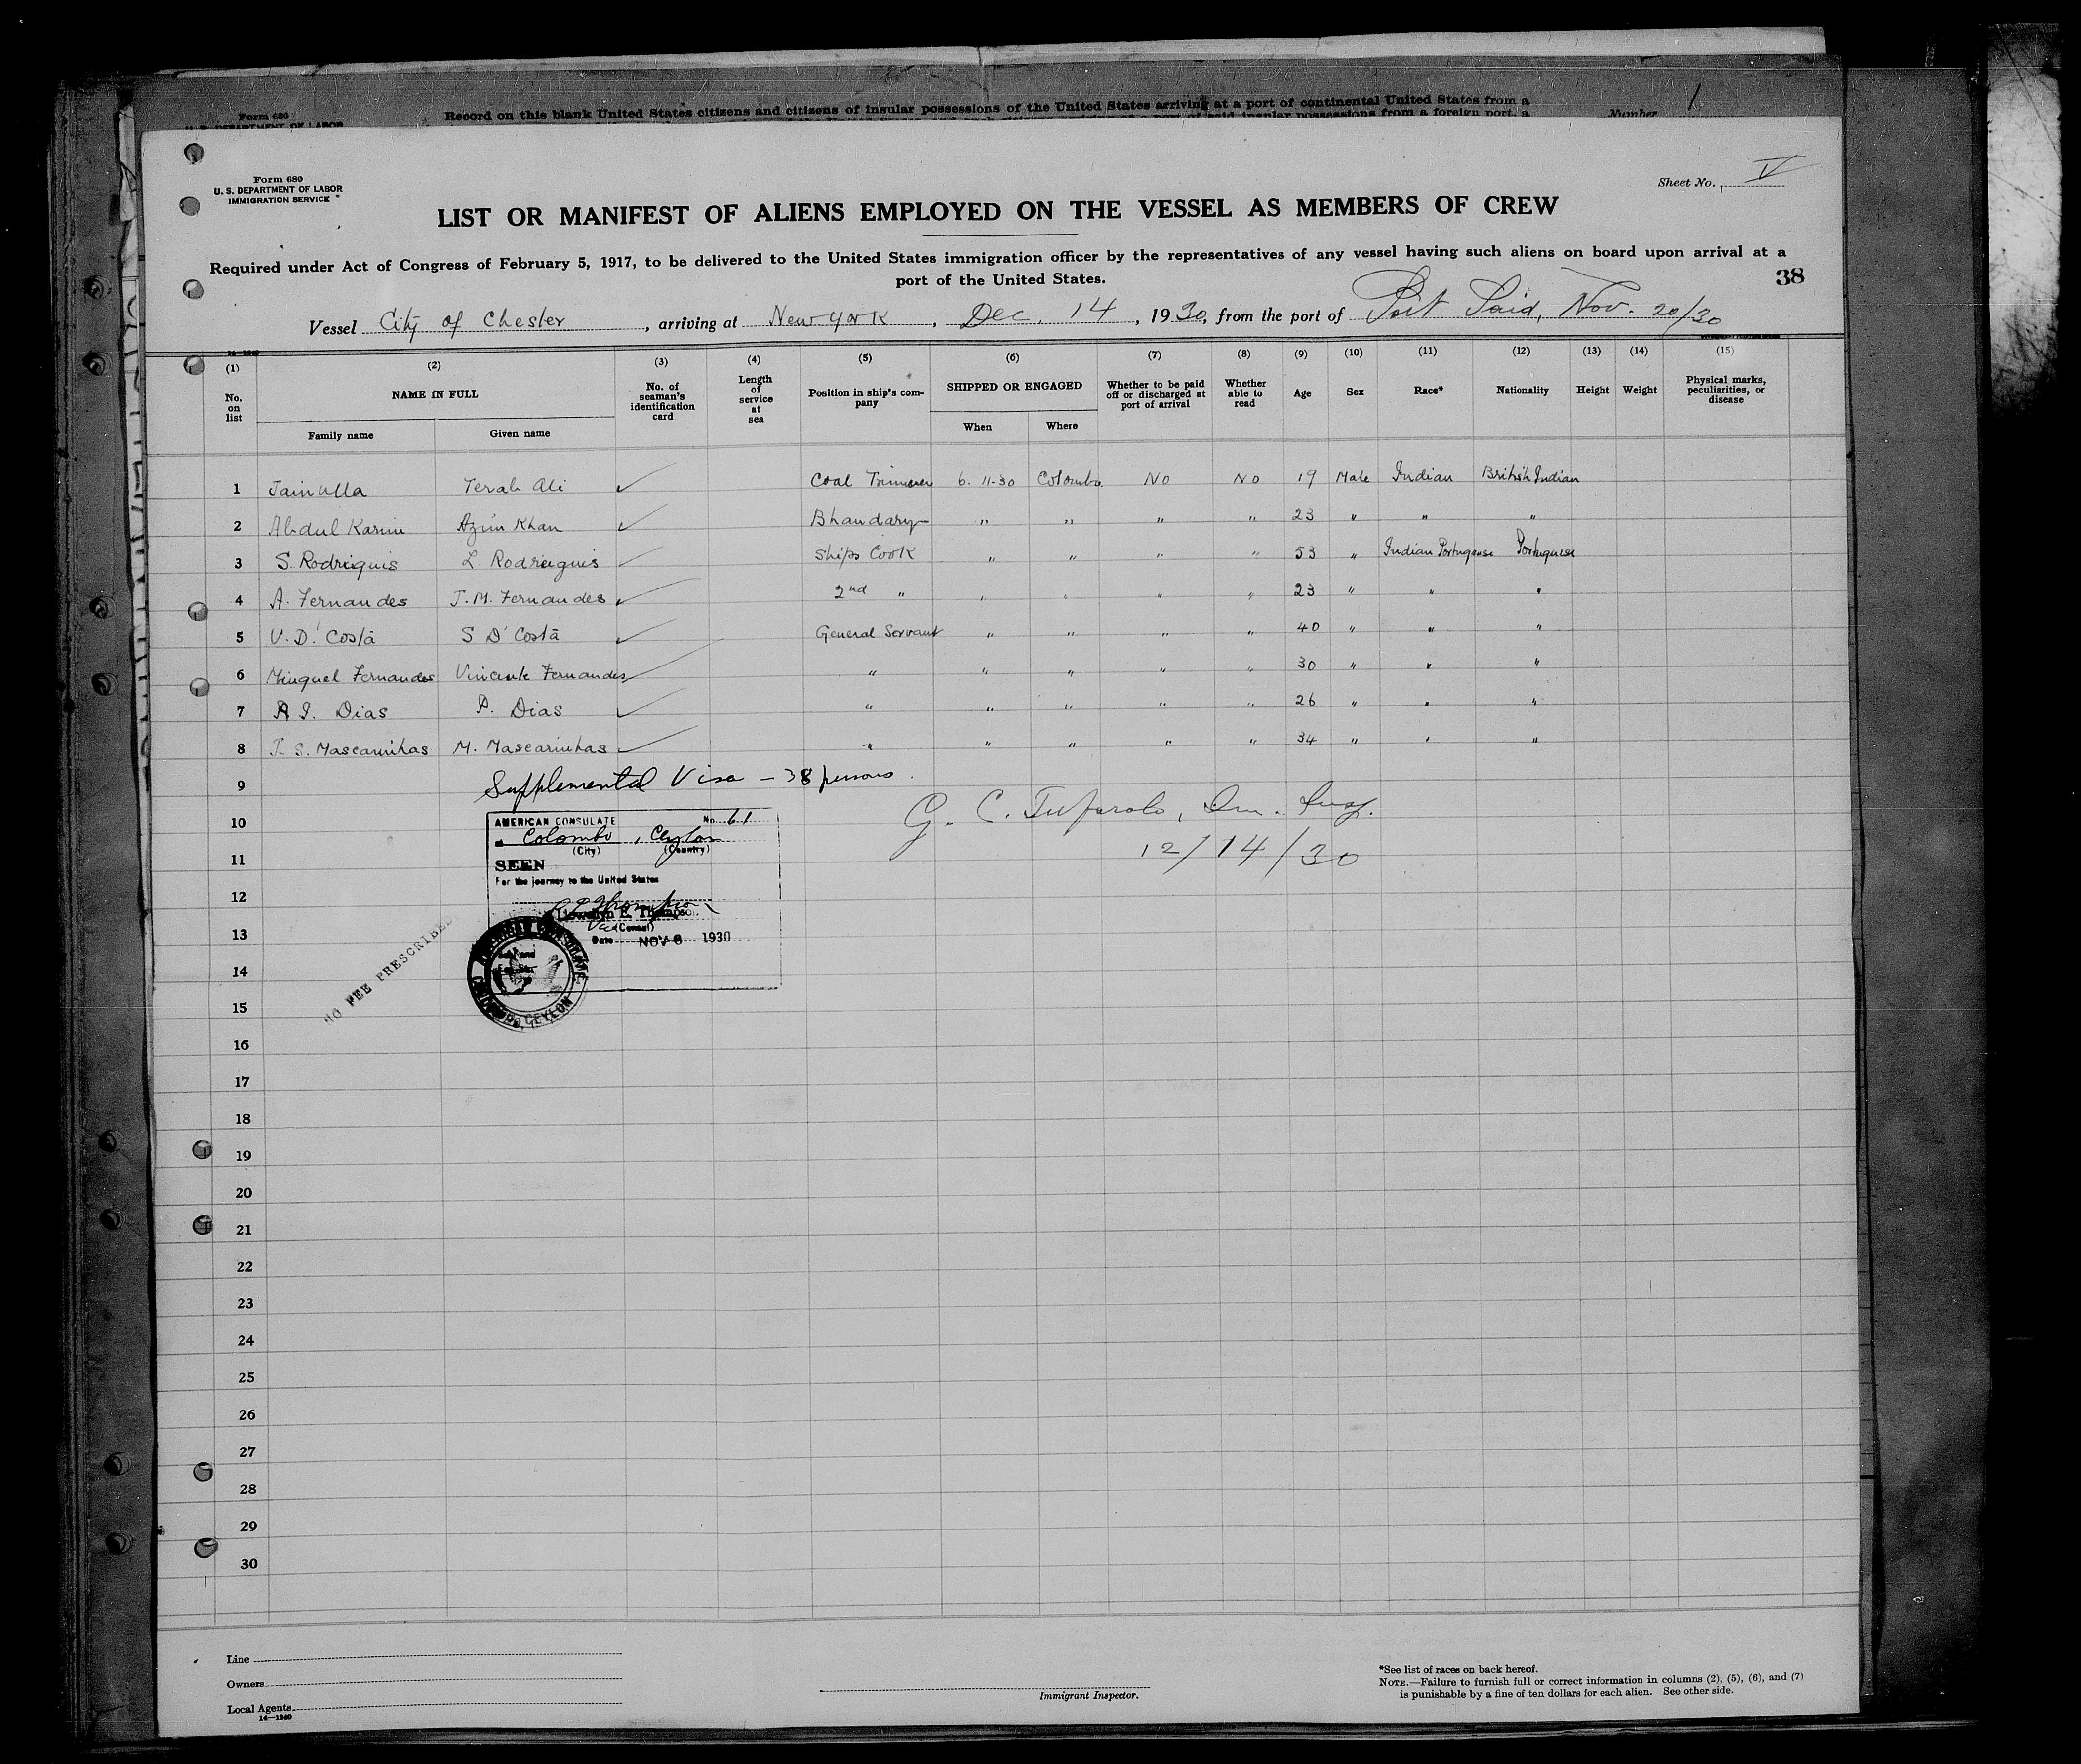 Form 630
Record on this blank United States citizens and citizens of insular possessions of the United States arriving at a port of continental United States from a
Number 1
U. S. DEPARTMENT OF LABOR
Form 680
U. S. DEPARTMENT OF LABOR
IMMIGRATION SERVICE
Sheet No. V
LIST OR MANIFEST OF ALIENS EMPLOYED ON THE VESSEL AS MEMBERS OF CREW
Required under Act of Congress of February 5, 1917, to be delivered to the United States immigration officer by the representatives of any vessel having such aliens on board upon arrival at a
port of the United States.
38
Vessel City of Chester, arriving at New York, Dec. 14, 1930, from the port of Port Said, Nov. 20/30
14—1240
(1) (2) (3) (4) (5) (6) (7) (8) (9) (10) (11) (12) (13) (14) (15)
No. on list
NAME IN FULL
Family name
Given name
No. of seaman's identification card
Length of service at sea
Position in ship's company
SHIPPED OR ENGAGED
When
Where
Whether to be paid off or discharged at port of arrival
Whether able to read
Age
Sex
Race*
Nationality
Height
Weight
Physical marks, peculiarities, or disease
1 Jainulla Terab Ali ✓ Coal Trimmer 6. 11-30 Colombo No No 19 Male Indian British Indian
2 Abdul Karim Azim Khan ✓ Bhandary " " " " 23 " " "
3 S. Rodriguis L. Rodriguis ✓ Ships Cook " " " " 53 " Indian Portugeuse Portuguese
4 A. Fernandes J. M. Fernandes ✓ 2nd " " " " " 23 " " "
5 V. D' Costa S D' Costa ✓ General Servant " " " " 40 " " "
6 Minguel Fernandes Vincente Fernandes ✓ " " " " " 30 " " "
7 A I. Dias P. Dias ✓ " " " " " 26 " " "
8 J. S. Mascarinhas M. Mascarinhas ✓ " " " " " 34 " " "
9
Supplemental Visa — 38 persons.
10
AMERICAN CONSULATE No. 61
Colombo, Ceylon
(City) (Country)
SEEN
For the journey to the United States
Llewellyn E. Thompson
Vice (Consul)
Date NOV 6 1930
AMERICAN CONSULATE
COLOMBO, CEYLON
NO FEE PRESCRIBED
G. C. Tuforolo, Im. Insp.
12/14/30
11
12
13
14
15
16
17
18
19
20
21
22
23
24
25
26
27
28
29
30
Line
Owners
Local Agents
14—1240
Immigrant Inspector.
*See list of races on back hereof.
NOTE.—Failure to furnish full or correct information in columns (2), (5), (6), and (7)
is punishable by a fine of ten dollars for each alien. See other side.